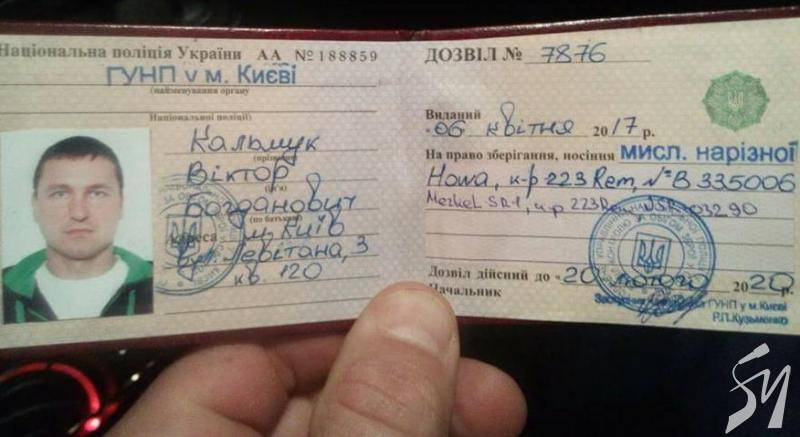 Національна поліція України АА №188859
ГУНП у м. Києві
(найменування органу
Національної поліції)
Кальмук
Віктор
Богданович
(по батькові)
м. Київ
Адреса
бул. Левітана, 3
кв. 120
ДОЗВІЛ № 7876
Виданий
"06 квітня 2017 р.
На право зберігання, носіння мисл. нарізної
Howa, к-р 223 Rem, №B335006
к-р 223Re
Дозвіл дійсний до "20 лютого 2020 р.
Начальник
ГУНП у м.Києві
Р.П.Кузьменко
SM